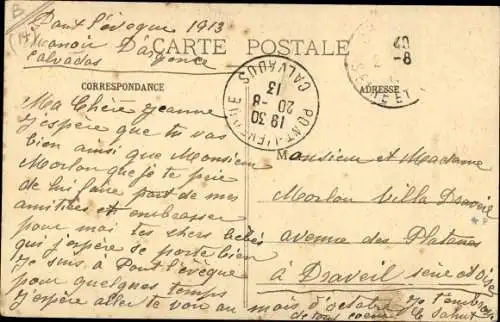 B
(14)
Pont l'évêque 1913
manoir D'argence
Calvados
CARTE POSTALE
CORRESPONDANCE
ADRESSE
PONT-L'EVEQUE
19 30
20 -8
13
CALVADOS
40
-8
SEINE ET
Ma Chère Jeanne
J'espère que tu vas
bien ainsi que Monsieur
Morlon que je te prie
de lui faire part de mes
amitiées et embrasser
pour moi tes chers bébés
qui j'espère se porte bien
Je suis à Pont l'évêque
pour quelques temps
J'espère aller te voir au mois d'octobre je t'embrasse
de tout coeur
Monsieur et Madame
Morlon Villa Draveil
avenue des Platanes
à Draveil seine et oise